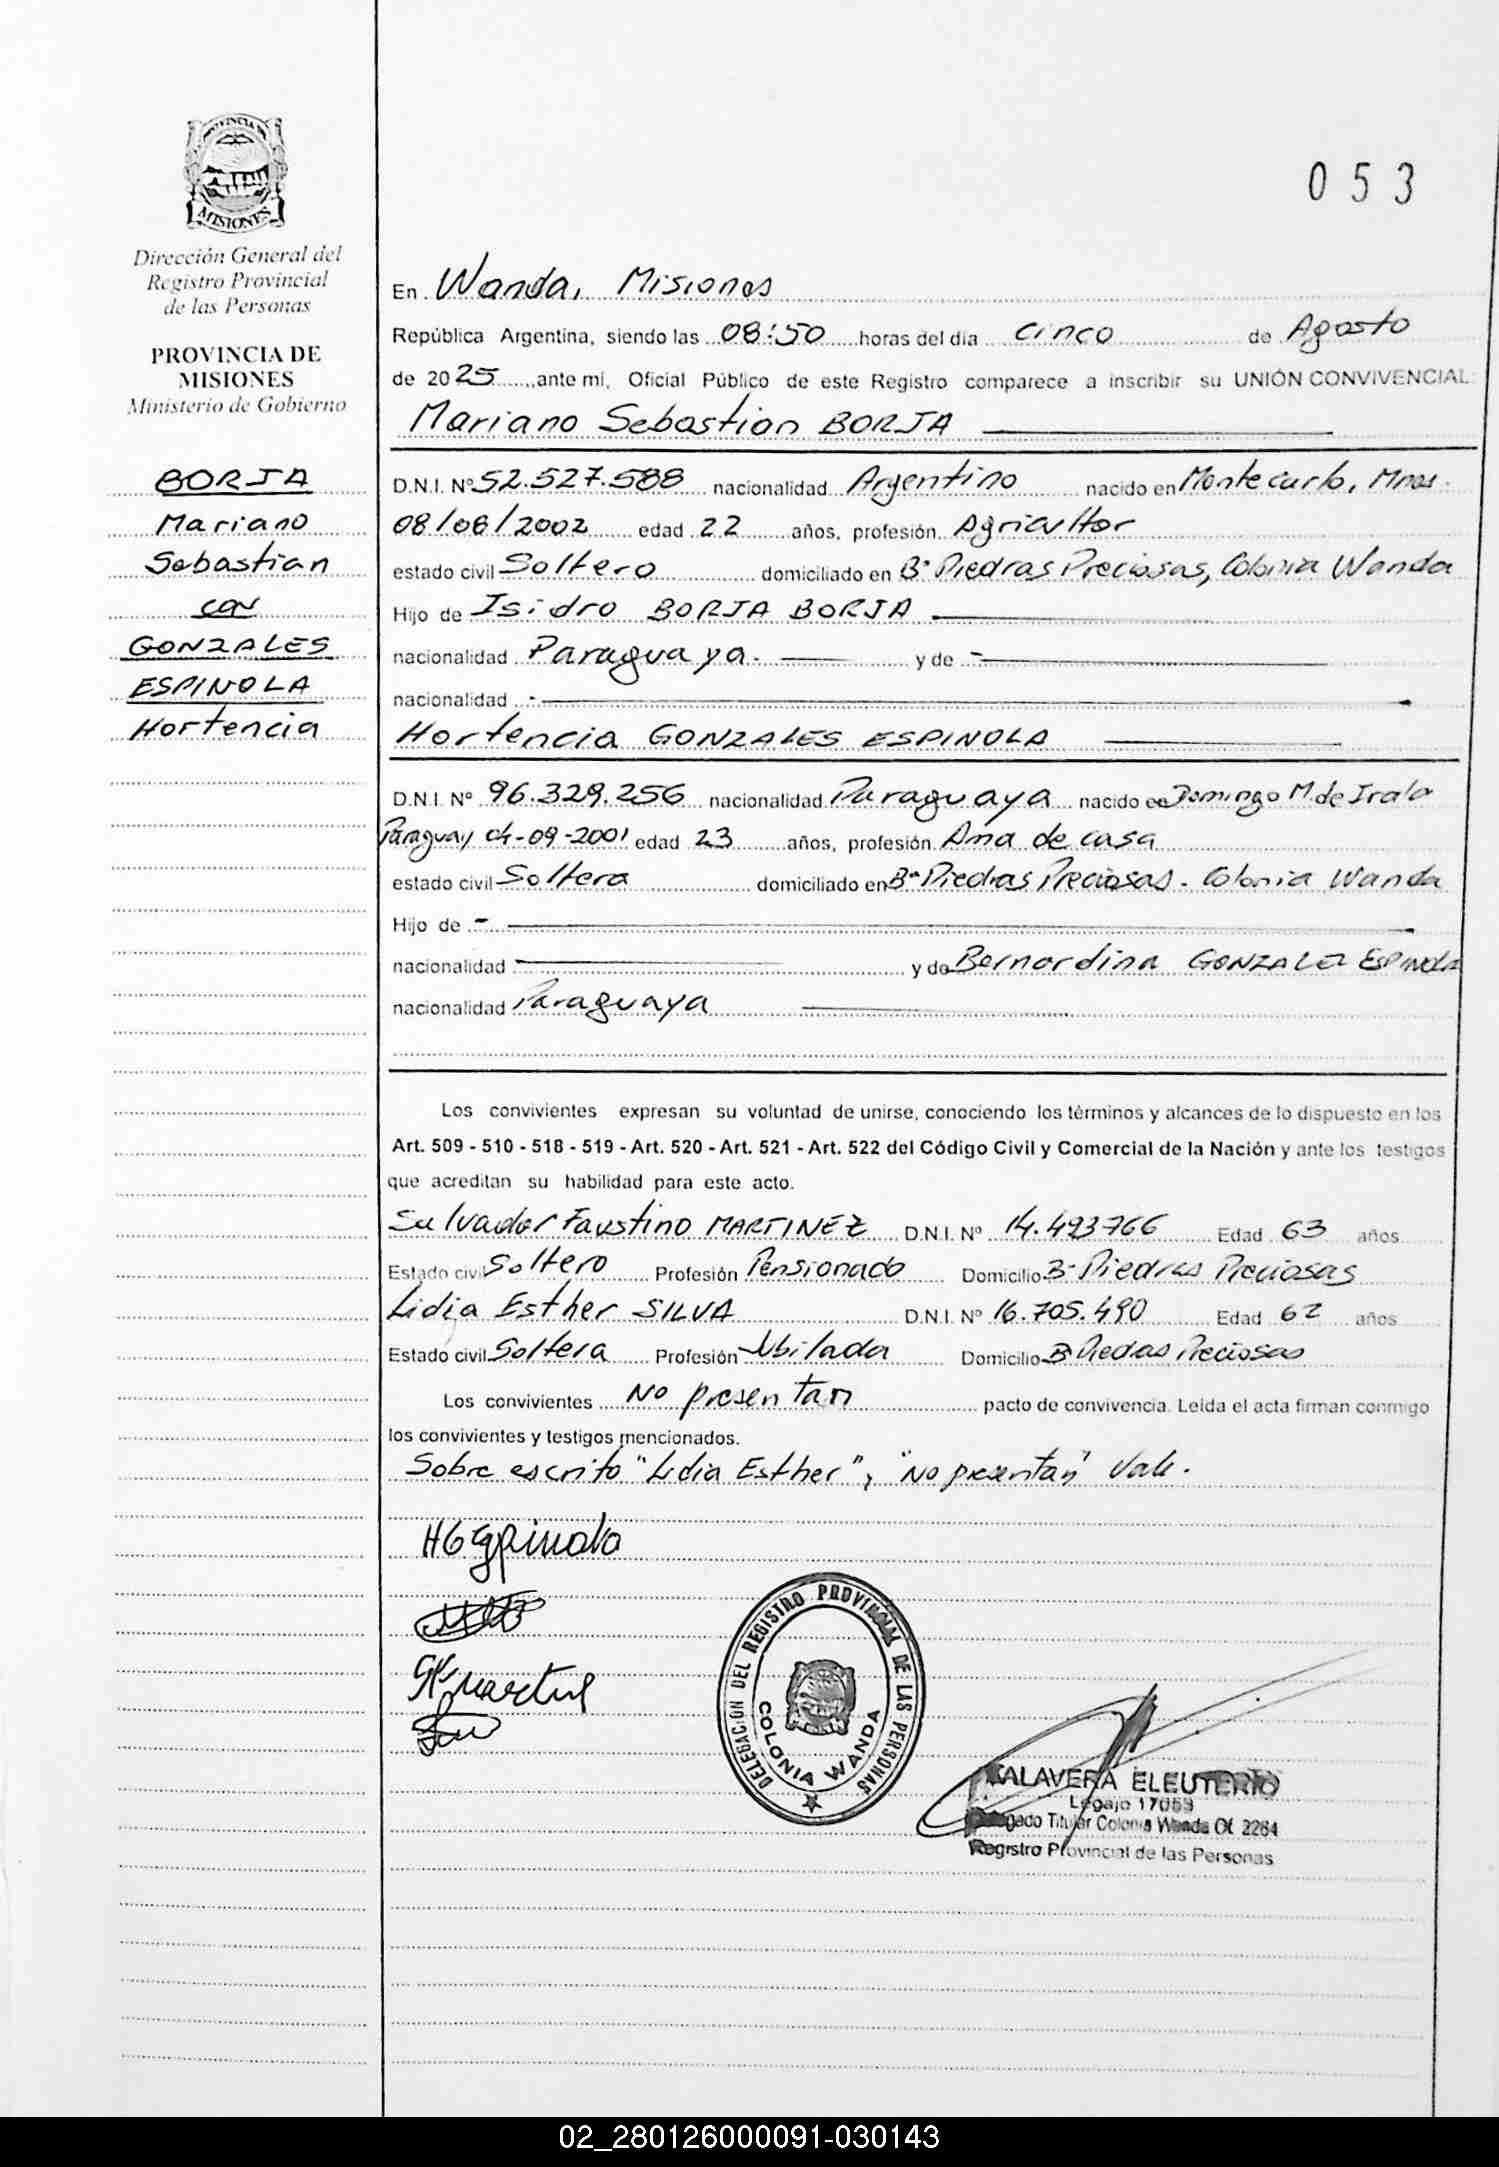 PROVINCIA DE
MISIONES
Dirección General del
Registro Provincial
de las Personas
PROVINCIA DE
MISIONES
Ministerio de Gobierno
BORJA
Mariano
Sebastian
con
GONZALES
ESPINOLA
Hortencia
053
En Wanda, Misiones
República Argentina, siendo las 08:50 horas del día cinco de Agosto
de 2025, ante mí, Oficial Público de este Registro comparece a inscribir su UNIÓN CONVIVENCIAL:
Mariano Sebastian BORJA
D.N.I. Nº 52.527.588 nacionalidad Argentino nacido en Montecarlo, Mnes.
08/08/2002 edad 22 años, profesión Agricultor
estado civil Soltero domiciliado en Bº Piedras Preciosas, Colonia Wanda
Hijo de Isidro BORJA BORJA
nacionalidad Paraguaya. y de -
nacionalidad -
Hortencia GONZALES ESPINOLA
D.N.I. Nº 96.329.256 nacionalidad Paraguaya nacido en Domingo M. de Irala
Paraguay 04-09-2001 edad 23 años, profesión Ama de casa
estado civil Soltera domiciliado en Bº Piedras Preciosas - Colonia Wanda
Hijo de -
nacionalidad y de Bernardina GONZALEZ ESPINOLA
nacionalidad Paraguaya
Los convivientes expresan su voluntad de unirse, conociendo los términos y alcances de lo dispuesto en los
Art. 509 - 510 - 518 - 519 - Art. 520 - Art. 521 - Art. 522 del Código Civil y Comercial de la Nación y ante los testigos
que acreditan su habilidad para este acto.
Salvador Faustino MARTINEZ D.N.I. Nº 14.493766 Edad 63 años
Estado civil Soltero Profesión Pensionado Domicilio Bº Piedras Preciosas
Lidia Esther SILVA D.N.I. Nº 16.705.490 Edad 62 años
Estado civil Soltera Profesión Jubilada Domicilio Bº Piedras Preciosas
Los convivientes No presentan pacto de convivencia. Leída el acta firman conmigo
los convivientes y testigos mencionados.
Sobre escrito "Lidia Esther", "No presentan" Vale.
HGEspinola
DELEGACIÓN DEL REGISTRO PROVINCIAL DE LAS PERSONAS
COLONIA WANDA
TALAVERA ELEUTERIO
Legajo 17053
Delegado Titular Colonia Wanda Of. 2264
Registro Provincial de las Personas
02_280126000091-030143